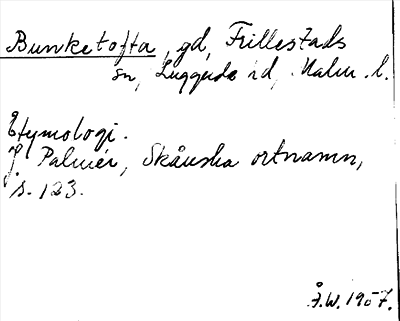 Bunketofta, gd, Frillestads
sn, Luggude hd, Malm. l.
Etymologi.
J. Palmér, Skånska ortnamn,
s. 123.
Å.W. 1957.